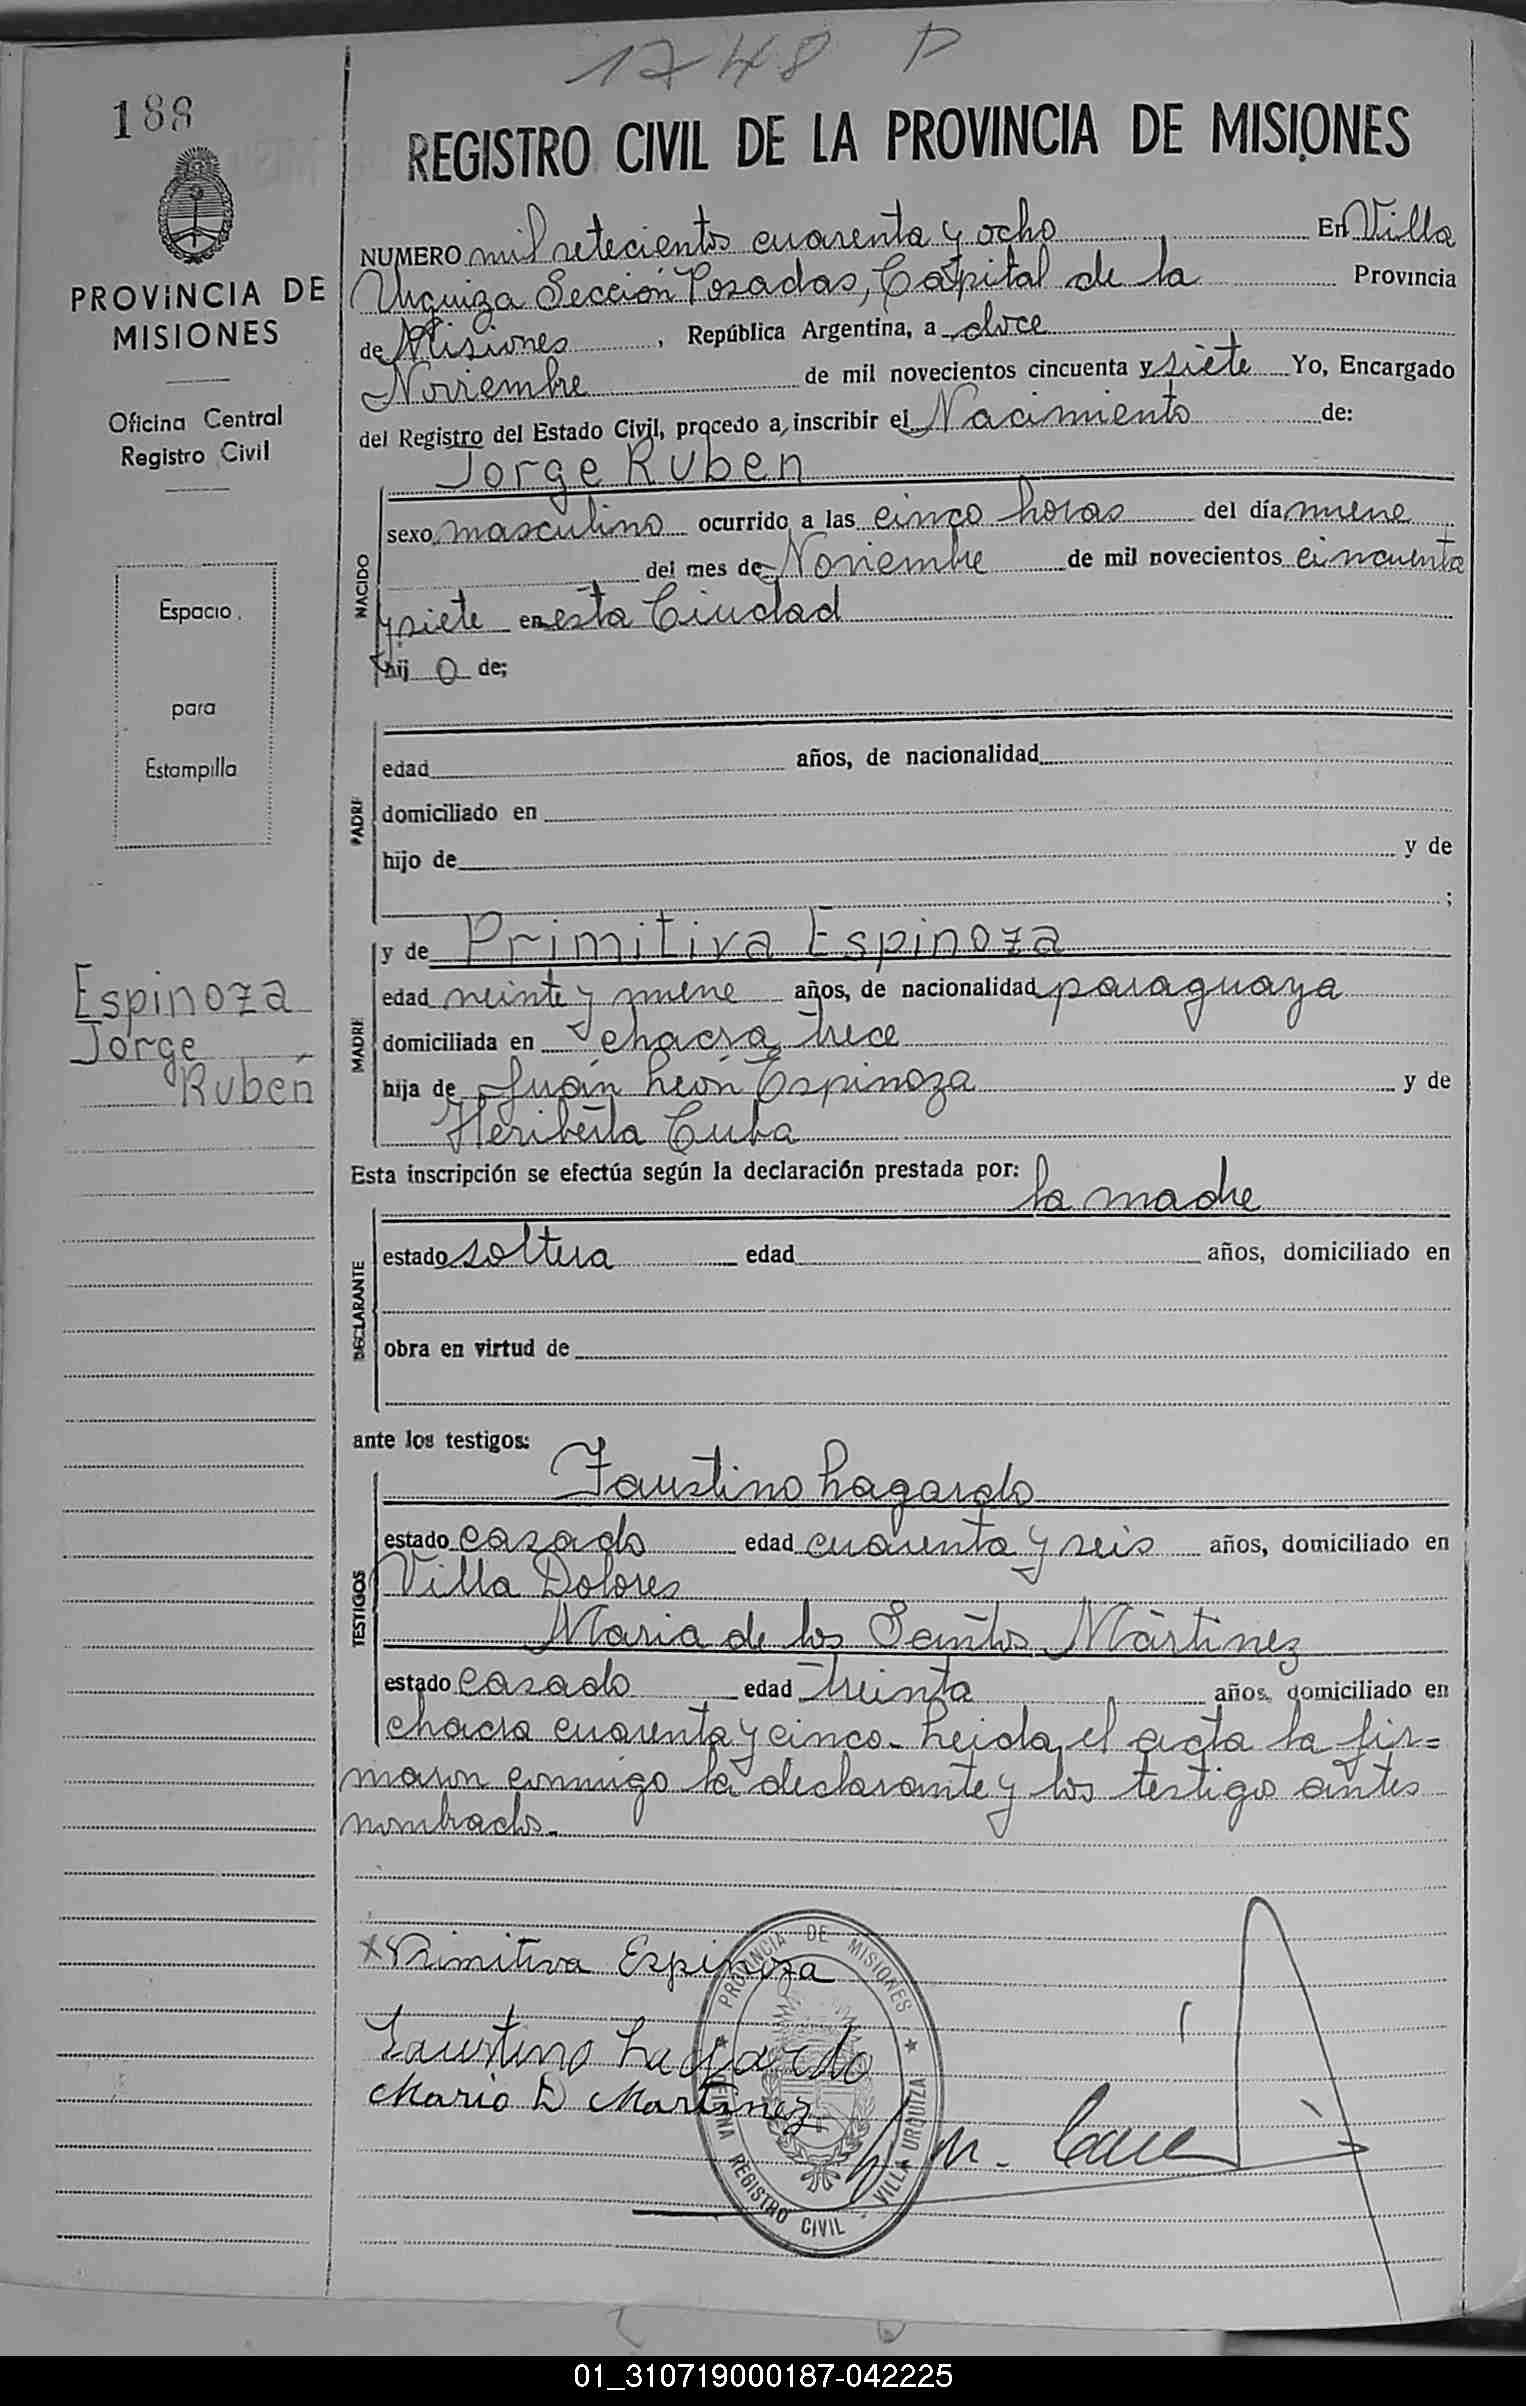 1748 P
188
REGISTRO CIVIL DE LA PROVINCIA DE MISIONES
PROVINCIA DE
MISIONES
Oficina Central
Registro Civil
Espacio
para
Estampilla
Espinoza
Jorge
Rubén
NUMERO mil setecientos cuarenta y ocho En Villa
Urquiza Sección Posadas, Capital de la Provincia
de Misiones, República Argentina, a doce
Noviembre de mil novecientos cincuenta y siete Yo, Encargado
del Registro del Estado Civil, procedo a inscribir el Nacimiento de:
Jorge Ruben
NACIDO
sexo masculino ocurrido a las cinco horas del día nueve
del mes de Noviembre de mil novecientos cincuenta
y siete en esta Ciudad
hijo de;
PADRE
edad años, de nacionalidad
domiciliado en
hijo de y de
;
MADRE
y de Primitiva Espinoza
edad veinte y nueve años, de nacionalidad paraguaya
domiciliada en chacra trece
hija de Juán León Espinoza y de
Heriberta Cuba
Esta inscripción se efectúa según la declaración prestada por:
la madre
DECLARANTE
estado soltera edad años, domiciliado en
obra en virtud de
ante los testigos:
Faustino Lagardo
TESTIGOS
estado casado edad cuarenta y seis años, domiciliado en
Villa Dolores
Maria de los Santos Mártinez
estado casado edad treinta años, domiciliado en
chacra cuarenta y cinco. Leida el acta la fir=
maron conmigo la declarante y los testigo antes
nombrados.
x Primitiva Espinoza
Faustino Lagardo
Mario D Martinez
PROVINCIA DE MISIONES
OFICINA REGISTRO CIVIL
VILLA URQUIZA
01_310719000187-042225